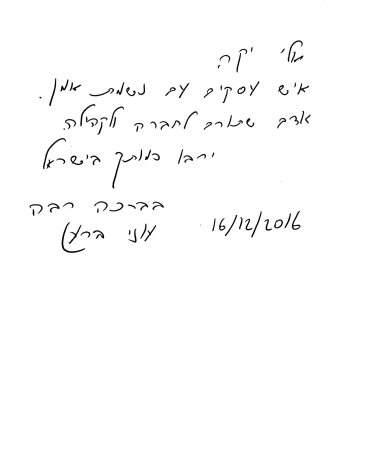 איש עסקים עם נשמת אמן.
אדם שתורם לחברה ולקהילה.
ירבו כמותך בישראל
בברכה רבה
16/12/2016